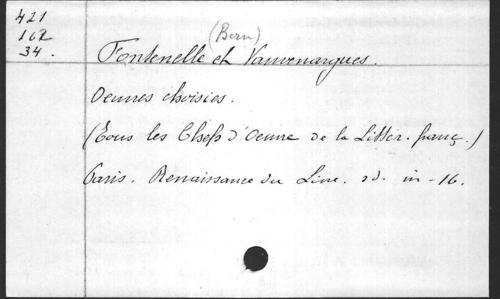 421
162
34.
(Bern)
Fontenelle et Vauvenargues.
Oeuvres choisies.
(Tous les Chefs d'Oeuvre de la Littér. franç.)
Paris. Renaissance du Livre. sd. in-16.